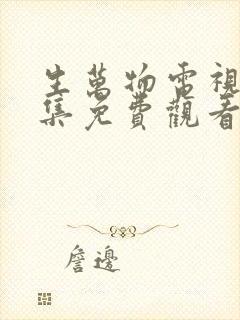 生萬物電視
集免費觀看
詹邊